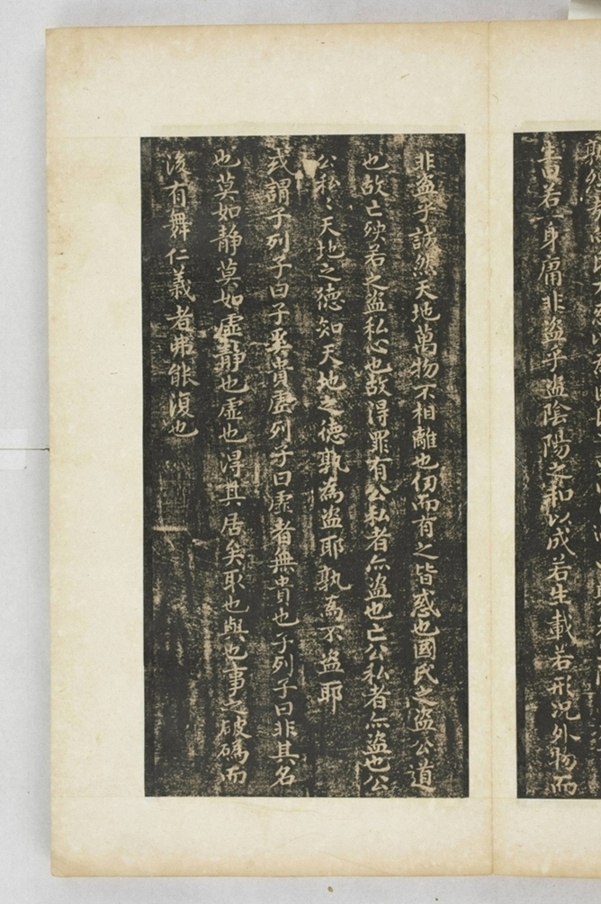 書若一身庸非盜乎盜陰陽之和以成若生載若形況外物而
非盜乎誠然天地萬物不相離也仞而有之皆惑也國氏之盜公道
也故亡殃若之盜私心也故得罪有公私者亦盜也亡公私者亦盜也公
公私〻天地之德知天地之德孰為盜耶孰為不盜耶
或謂子列子曰子奚貴虛列子曰虛者無貴也子列子曰非其名
也莫如静莫如虛静也虛也得其居矣取也與也事之破䃣而
後有舞仁義者弗能復也